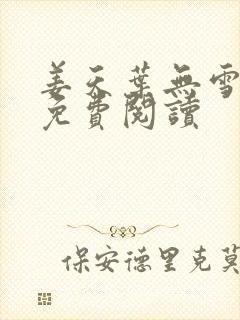 姜天葉無雪
免費閱讀
保安德里克莫